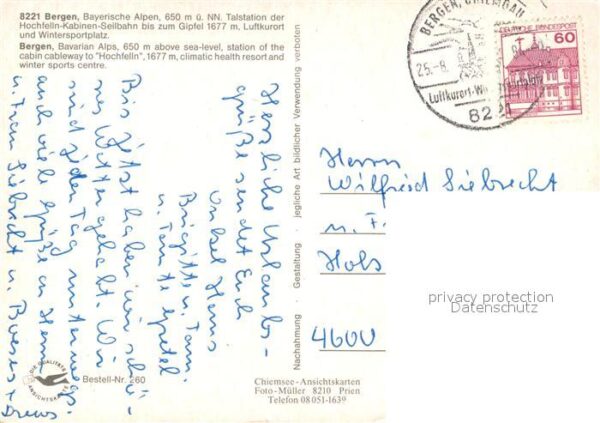 8221 Bergen, Bayerische Alpen, 650 m ü. NN. Talstation der
Hochfelln-Kabinen-Seilbahn bis zum Gipfel 1677 m, Luftkurort
und Wintersportplatz.
Bergen, Bavarian Alps, 650 m above sea-level, station of the
cabin cableway to "Hochfelln", 1677 m, climatic health resort and
winter sports centre.
BERGEN, CHIEMGAU
25.-8.
Luftkurort-
8221
60
DEUTSCHE BUNDESPOST
Herzliche Urlaubs-
grüße sendet Euch
Onkel Hans
u. Tante
Brigitte u. Fam.
Bis jetzt haben wir schö-
nes Wetter gehabt. Wir
sind jeden Tag unterwegs.
auch viele Grüße an Herrn
u. Frau Siebrecht u.
Herrn
Wilfried Siebrecht
u. F.
Hols
4600
privacy protection
Datenschutz
Nachahmung · Gestaltung · jegliche Art bildlicher Verwendung verboten
DIE QUALITÄTS
ANSICHTSKARTE
Bestell-Nr. 260
Chiemsee-Ansichtskarten
Foto-Müller 8210 Prien
Telefon 08051-1639